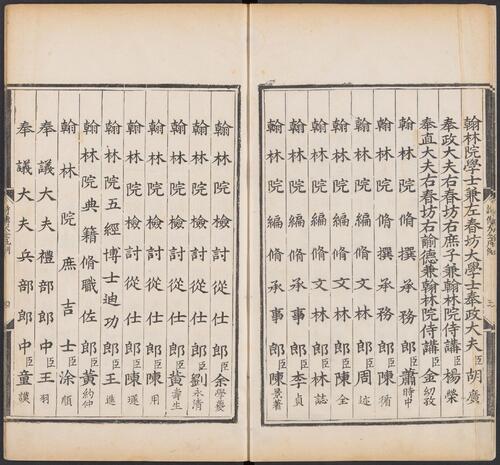 翰林院學士兼左春坊大學士奉政大夫臣胡廣
奉政大夫右春坊右庶子兼翰林院侍講臣楊榮
奉直大夫右春坊右諭德兼翰林院侍講臣金幼孜
翰林院脩撰承務郎臣蕭時中
翰林院脩撰承務郎臣陳循
翰林院編脩文林郎臣周述
翰林院編脩文林郎臣陳全
翰林院編脩文林郎臣林誌
翰林院編脩承事郎臣李貞
翰林院編脩承事郎臣陳景著
翰林院檢討從仕郎臣余學夔
翰林院檢討從仕郎臣劉永清
翰林院檢討從仕郎臣黃壽生
翰林院檢討從仕郎臣陳用
翰林院檢討從仕郎臣陳璲
翰林院五經博士迪功郎臣王進
翰林院典籍脩職佐郎臣黃約仲
翰林院庶吉士臣涂順
奉議大夫禮部郎中臣王羽
奉議大夫兵部郎中臣童謨